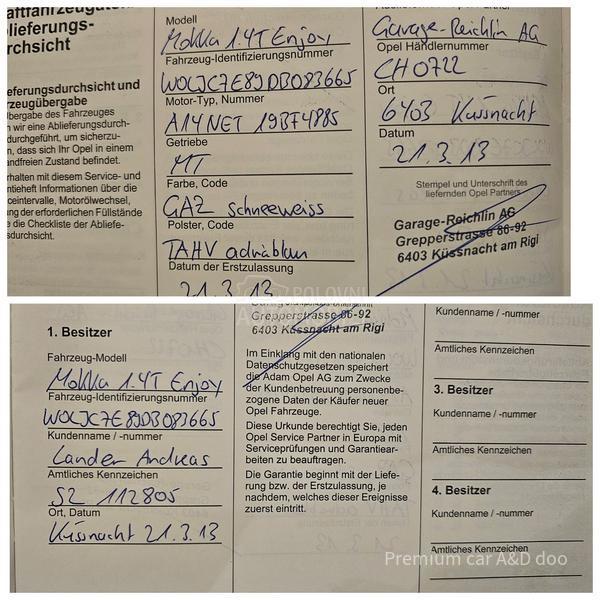 aftfahrzeugausw
blieferungs-
urchsicht
ieferungsdurchsicht und
rzeugübergabe
Übergabe des Fahrzeuges
n wir eine Ablieferungsdurch-
durchgeführt, um sicherzu-
n, dass sich Ihr Opel in einem
andfreien Zustand befindet.
rhalten mit diesem Service- und
ntieheft Informationen über die
ceintervalle, Motorölwechsel,
ung der erforderlichen Füllstände
e die Checkliste der Abliefe-
sdurchsicht.
Modell
Mokka 1.4T Enjoy
Fahrzeug-Identifizierungsnummer
W0LJC7E89DB083665
Motor-Typ, Nummer
A14NET 19B74885
Getriebe
MT
Farbe, Code
GAZ schneeweiss
Polster, Code
TAHV
Datum der Erstzulassung
21.3.13
Garage-Reichlin AG
Opel Händlernummer
CH0722
Ort
6403 Küssnacht
Datum
21.3.13
Stempel und Unterschrift des
liefernden Opel Partners
Garage-Reichlin AG
Grepperstrasse 86-92
6403 Küssnacht am Rigi
POLOVNI
1. Besitzer
Fahrzeug-Modell
Mokka 1.4T Enjoy
Fahrzeug-Identifizierungsnummer
W0LJC7E89DB083665
Kundenname / -nummer
Lander Andreas
Amtliches Kennzeichen
SZ 112805
Ort, Datum
Küssnacht 21.3.13
Grepperstrasse 86-92
6403 Küssnacht am Rigi
Im Einklang mit den nationalen
Datenschutzgesetzen speichert
die Adam Opel AG zum Zwecke
der Kundenbetreuung personenbe-
zogene Daten der Käufer neuer
Opel Fahrzeuge.
Diese Urkunde berechtigt Sie, jeden
Opel Service Partner in Europa mit
Serviceprüfungen und Garantiear-
beiten zu beauftragen.
Die Garantie beginnt mit der Liefe-
rung bzw. der Erstzulassung, je
nachdem, welches dieser Ereignisse
zuerst eintritt.
Kundenname / -nummer
Amtliches Kennzeichen
3. Besitzer
Kundenname / -nummer
Amtliches Kennzeichen
4. Besitzer
Kundenname / -nummer
Amtliches Kennzeichen
Premium car A&D doo